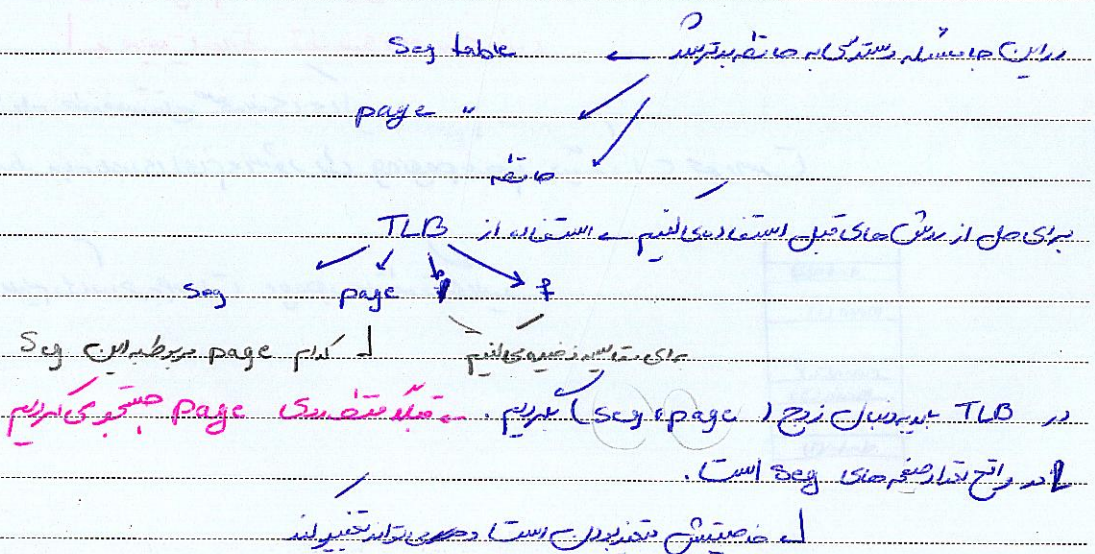 در این جا مسئله دسترسی به حافظه بدتر شد ← Seg table
page "
حافظه
برای حل از روش های قبل استفاده می کنیم ← استفاده از TLB
Seg page f
برای مقایسه ذخیره می کنیم کدام page مربوط به این Seg
در TLB باید دنبال زوج (seg , page) بگردیم. ← قبلا فقط روی page جستجو می کردیم
در واقع تعداد صفحه های Seg است.
خصیتش متغیر بودن است و می تواند تغییر کند